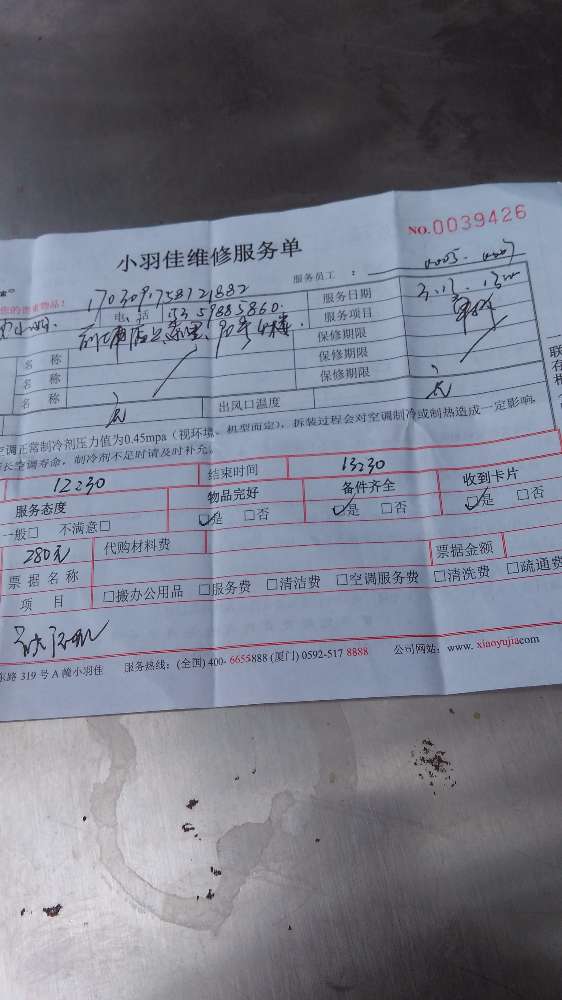 NO.0039426
小羽佳维修服务单
服务员工 : 0005. 0007
您的贵重物品!
17030917581721882
电 话 服务日期 3.13.
服务项目
90号 楼
保修期限
名 称 保修期限
名 称 保修期限
名 称
无 出风口温度 无
空调正常制冷剂压力值为0.45mpa(视环境、机型而定),拆装过程会对空调制冷或制热造成一定影响,
长空调寿命,制冷剂不足时请及时补充。
12:30 结束时间 13:30
服务态度 物品完好 备件齐全 收到卡片
一般□ 不满意□ ☑是 □否 ☑是 □否 ☑是 □否
280元 代购材料费 票据金额
票据名称
项 目 □搬办公用品 □服务费 □清洁费 □空调服务费 □清洗费 □疏通费
东路 319 号 A 幢小羽佳 服务热线:(全国) 400-6655888 (厦门) 0592-517 8888 公司网站:www. xiaoyujiacom